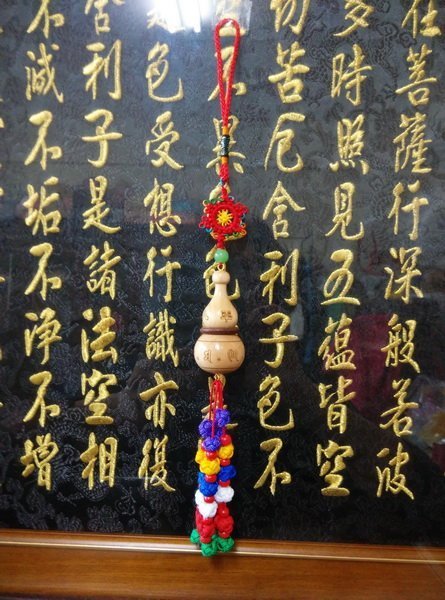 在菩薩行深般若波
多時照見五蘊皆空
切苦厄舍利子色不
是色受想行識亦復
舍利子是諸法空相
不滅不垢不淨不增